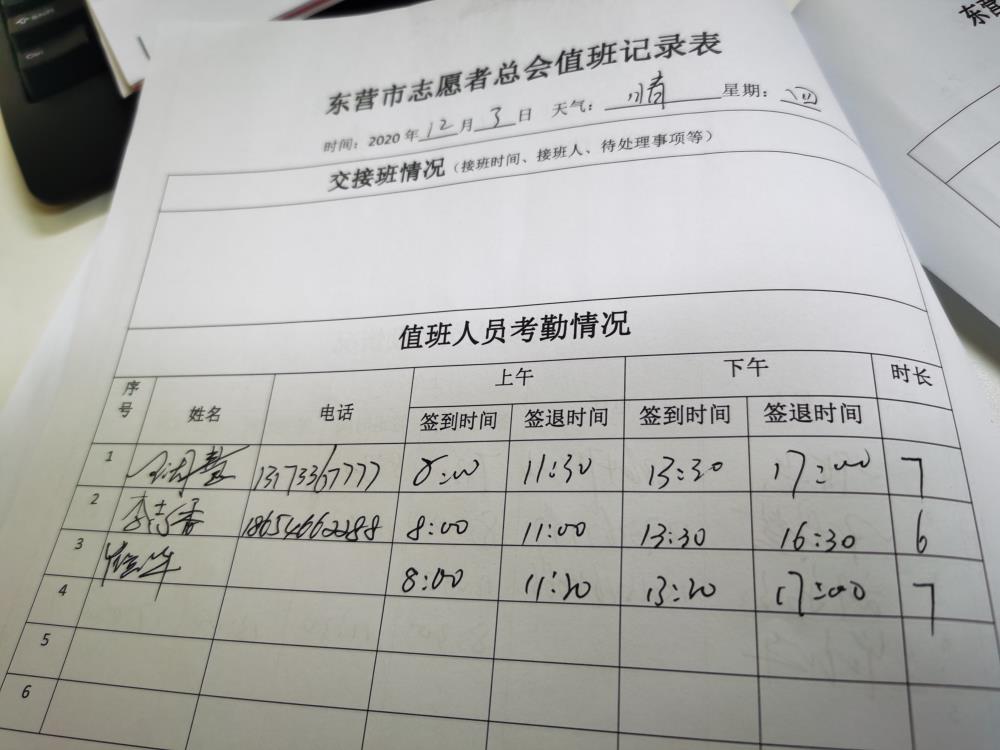 东营市志愿者总会值班记录表
时间：2020年12月3日 天气：晴 星期：四
交接班情况（接班时间、接班人、待处理事项等）
值班人员考勤情况
序号 姓名 电话 上午 下午 时长
签到时间 签退时间 签到时间 签退时间
1 13173367777 8:00 11:30 13:30 17:00 7
2 李志香 18654662288 8:00 11:00 13:30 16:30 6
3 8:00 11:30 13:30 17:00 7
4
5
6
东营